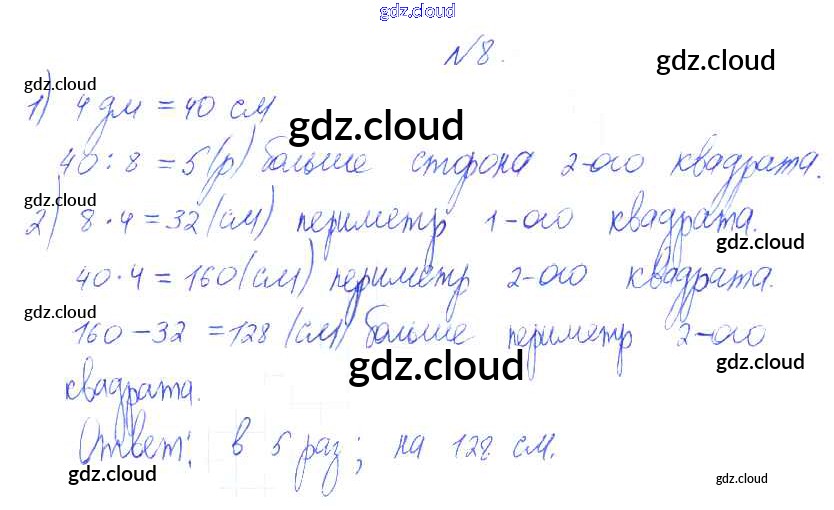 gdz.cloud
№8.
gdz.cloud
gdz.cloud
1) 4 дм = 40 см
gdz.cloud
40 : 8 = 5 (р) больше сторона 2-ого квадрата.
gdz.cloud
2) 8 · 4 = 32 (см) периметр 1-ого квадрата.
gdz.cloud
40 · 4 = 160 (см) периметр 2-ого квадрата.
gdz.cloud
160 - 32 = 128 (см) больше периметр 2-ого
gdz.cloud
gdz.cloud
квадрата.
Ответ: в 5 раз; на 128 см.
gdz.cloud
gdz.cloud